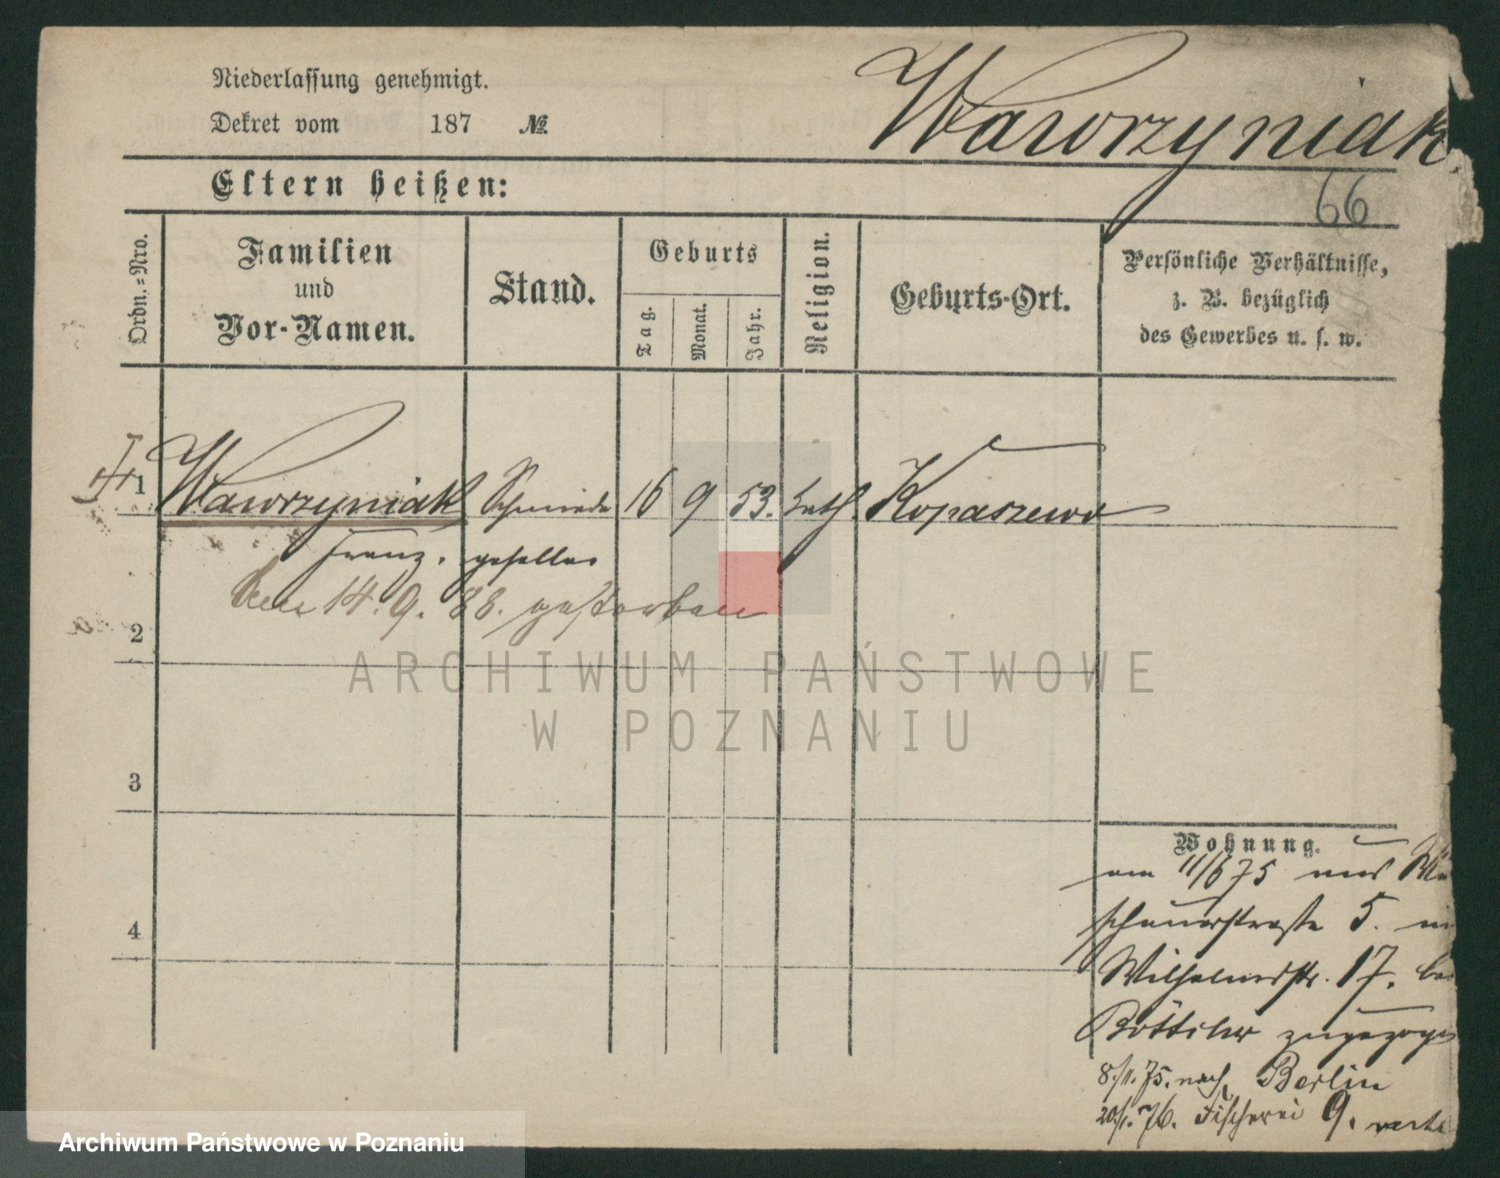 Niederlassung genehmigt.
Wawrzyniak
Dekret vom 187 №
Eltern heißen:
66
Ordn.=Nro.
Familien
und
Vor-Namen.
Stand.
Geburts
Tag.
Monat.
Jahr.
Religion.
Geburts-Ort.
Persönliche Verhältnisse,
z. B. bezüglich
des Gewerbes u. s. w.
1 Wawrzyniak Schmiede 16 9 53. kath. Kopaszewo
Franz. geselle
den 14. 9. 88. gestorben
2
ARCHIWUM PAŃSTWOWE
W POZNANIU
3
Wohnung.
am 11/6 75
schauerstraße 5.
4
Wilhelmstr. 17.
Böttcher zugezogen
8./11. 75. nach Berlin
20/1. 76. Fischerei 9.
Archiwum Państwowe w Poznaniu